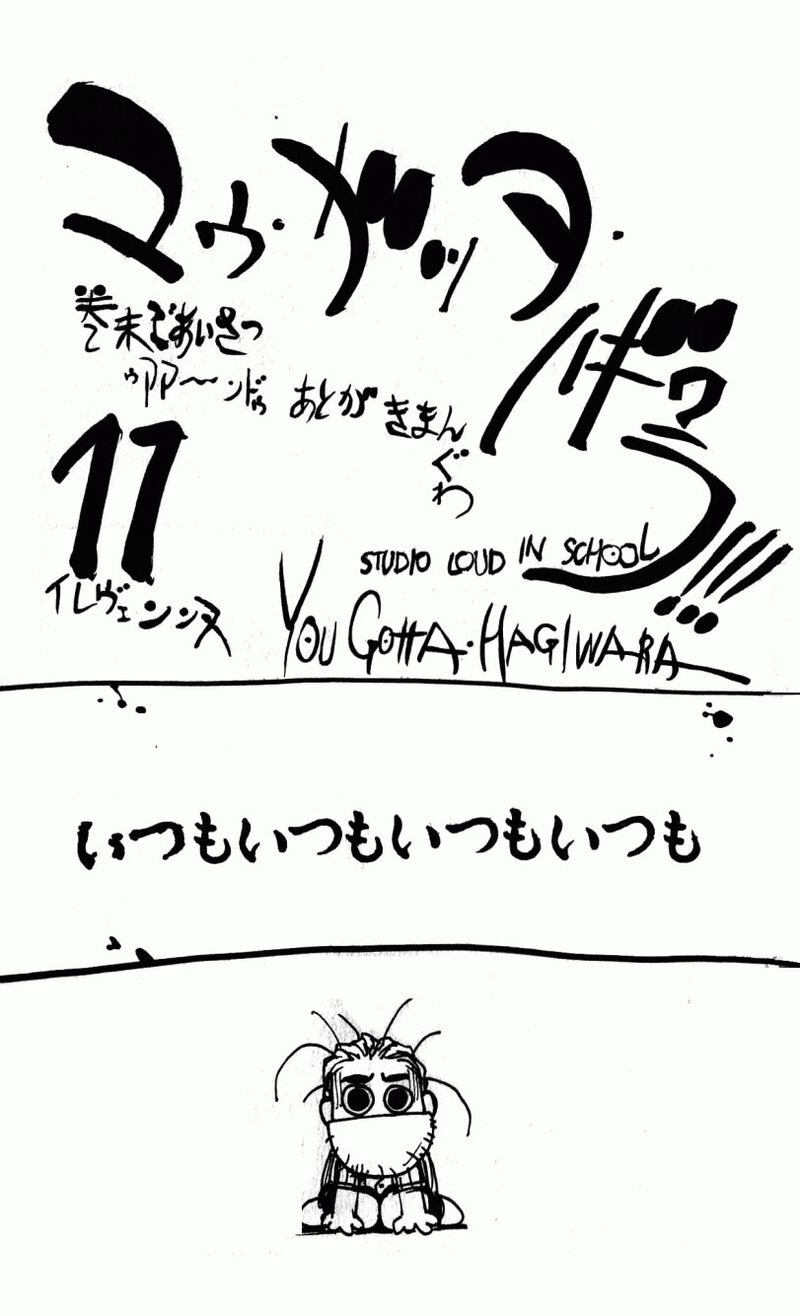 マゥ・ガッデ・
巻末ごあいさつ
ゥアア〜ンドゥ あとがきまんぐわ
11
イレヴェンンヌ
STUDIO LOUD IN SCHOOL
YOU GOTTA・HAGIWARA
いつもいつもいつもいつも